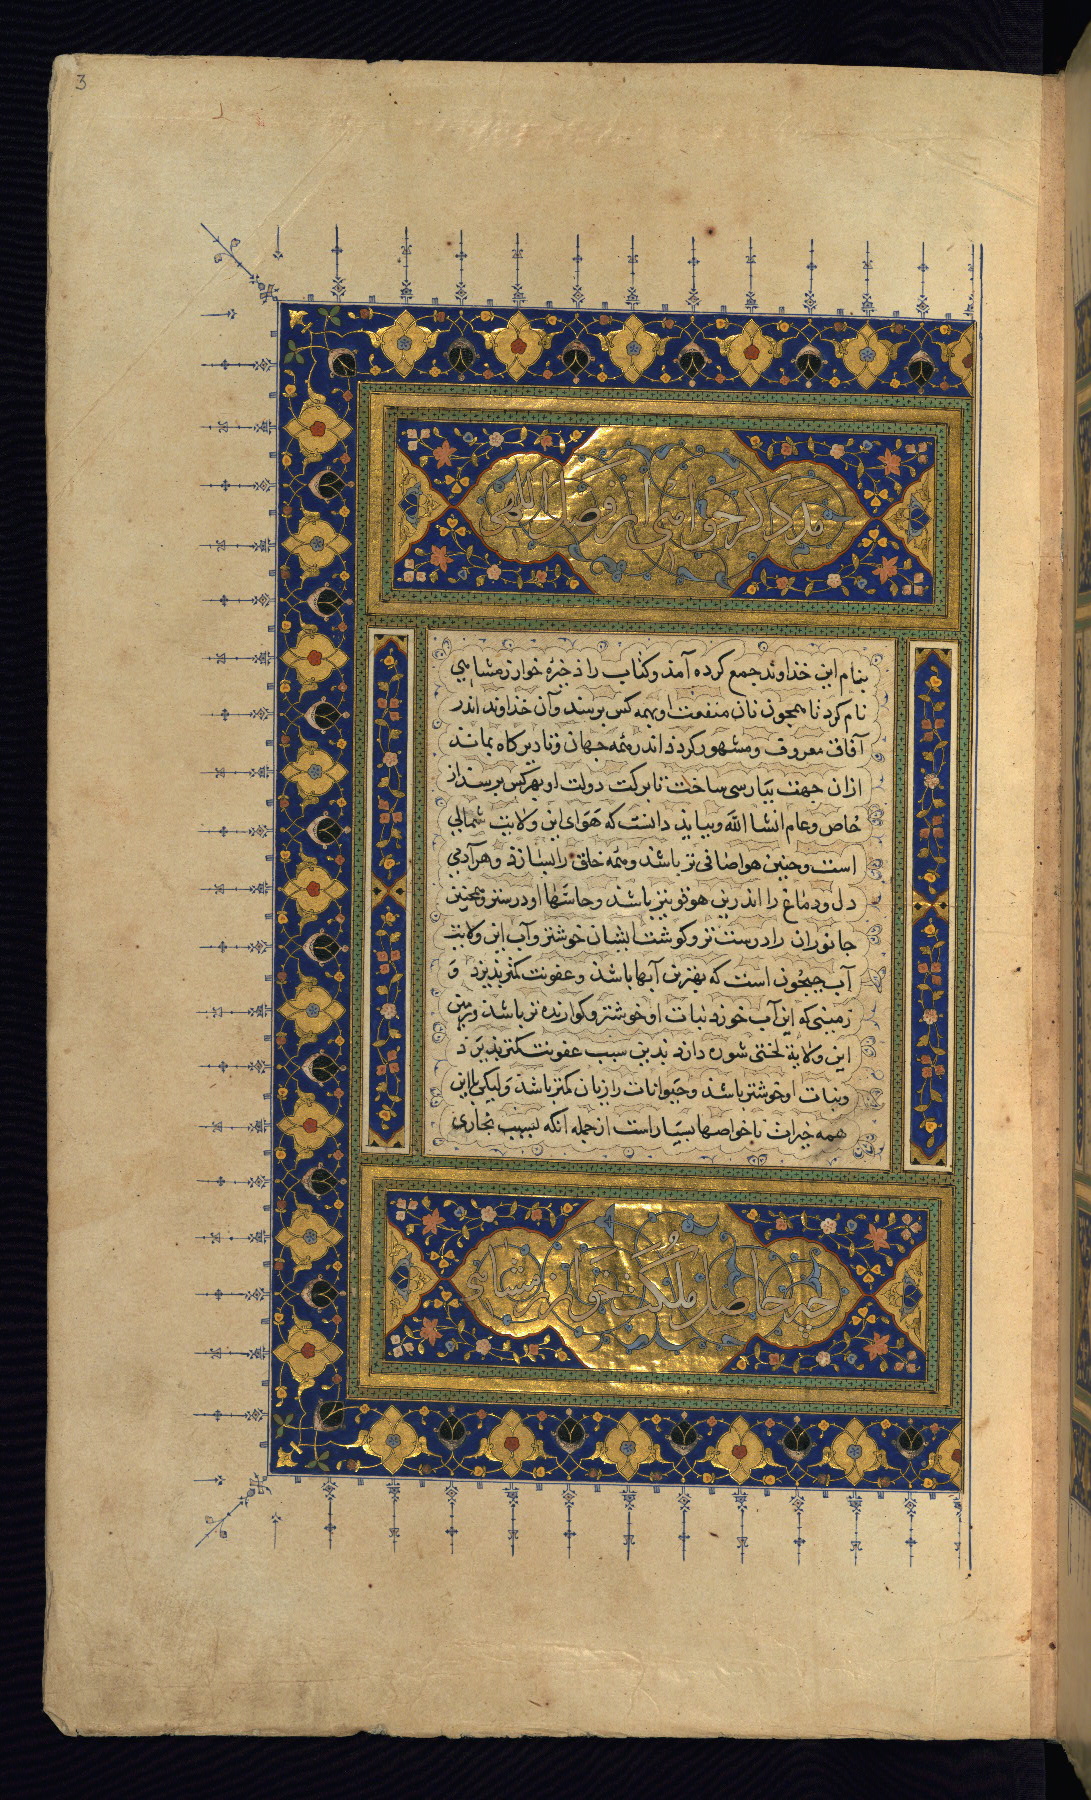 3
مدد گر خواهی از فضل الهی
بنام این خداوند جمع کرده آمذ و کتاب را ذخیره خوارزمشاهی
نام کرد تا همچون نان منفعت او بهمه کس برسد و آن خداوند اندر
آفاق معروف و مشهور کردذ اندر همه جهان و تا دیر کاه بماند
ازان جهت بپارسی ساخت تا برکت دولت او بهر کس برسد از
خاص و عام انشا الله و بباید دانست که هوای این ولایت شمالی
است و چنین هوا صافی تر باشذ و همه خلق را بسازذ و هر آدمی
دل و دماغ را اندرین هوا قوی تر باشذ و حاستها او درستر و همچنین
جانوران را درست تر و کوشت ایشان خوشتر و آب این ولایت
آب جیحون است که بهترین آبها باشذ و عفونت کمتر پذیرذ و
زمینی که این آب خورد نبات او خوشتر و کوارنده تر باشذ و زمین
این ولایة لختی شوره دارد بدین سبب عفونت کمتر پذیرد
و نبات او خوشتر باشد و حیوانات را زیان کمتر باشد و لیکن با این
همه خیرات ناخواصها بسیار است از جمله آنکه بسبب بخاری
چه حاصل ملکت خوارزمشاهی